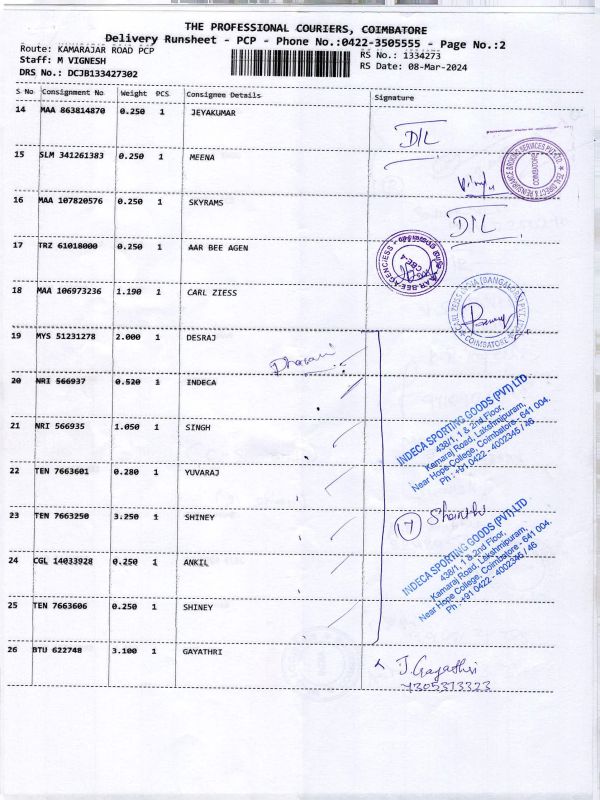 THE PROFESSIONAL COURIERS, COIMBATORE
Delivery Runsheet - PCP - Phone No.:0422-3505555 - Page No.:2
Route: KAMARAJAR ROAD PCP
RS No.: 1334273
Staff: M VIGNESH
RS Date: 08-Mar-2024
DRS No.: DCJB133427302
S No Consignment No Weight PCS Consignee Details Signature
14 MAA 863814870 0.250 1 JEYAKUMAR
D/L
15 SLM 341261383 0.250 1 MEENA
COIMBATORE
16 MAA 107820576 0.250 1 SKYRAMS
D/L
17 TRZ 61018000 0.250 1 AAR BEE AGEN
AAR BEE AGENCIESS
CBE-4
18 MAA 106973236 1.190 1 CARL ZIESS
COIMBATORE
19 MYS 51231278 2.000 1 DESRAJ
Dharani
20 NRI 566937 0.520 1 INDECA
INDECA SPORTING GOODS (PVT) LTD
438/1, 1 & 2nd Floor,
Kamaraj Road, Lakshmipuram,
Near Hope College, Coimbatore - 641 004.
Ph : +91 0422 - 4002345 / 46
21 NRI 566935 1.050 1 SINGH
22 TEN 7663601 0.280 1 YUVARAJ
23 TEN 7663250 3.250 1 SHINEY
17
INDECA SPORTING GOODS (PVT) LTD
438/1, 1 & 2nd Floor,
Kamaraj Road, Lakshmipuram,
Near Hope College, Coimbatore - 641 004.
Ph : +91 0422 - 4002345 / 46
24 CGL 14033928 0.250 1 ANKIL
25 TEN 7663606 0.250 1 SHINEY
26 BTU 622748 3.100 1 GAYATHRI
J. Gayathri
7305373323